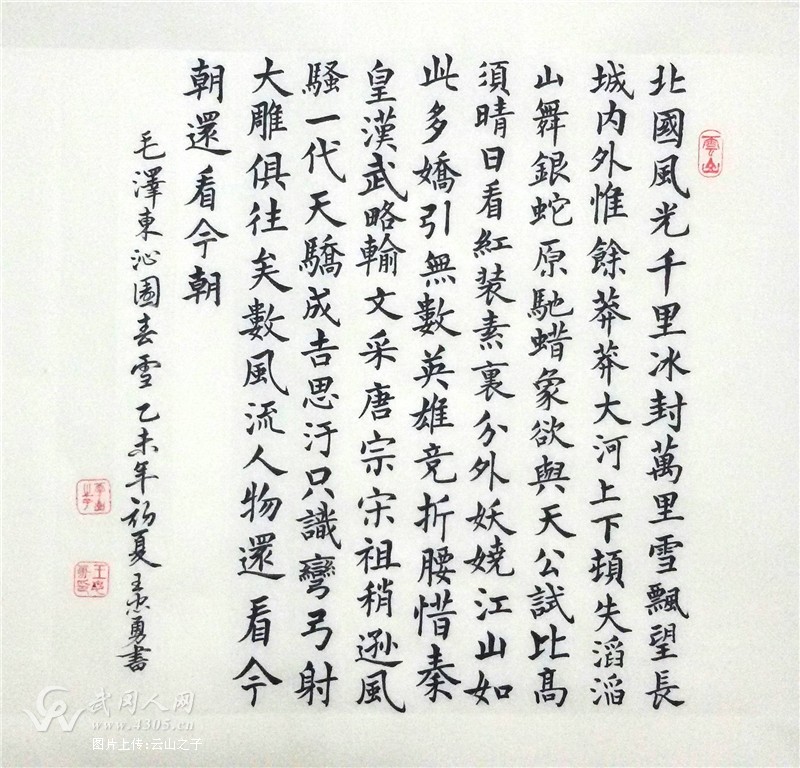 雲山
北國風光千里冰封萬里雪飄望長
城内外惟餘莽莽大河上下頓失滔滔
山舞銀蛇原馳蜡象欲與天公試比高
須晴日看紅裝素裏分外妖嬈江山如
此多嬌引無數英雄竞折腰惜秦
皇漢武略輸文采唐宗宋祖稍遜風
騷一代天驕成吉思汗只識彎弓射
大雕俱往矣數風流人物還看今
朝還看今朝
毛澤東沁園春雪乙未年初夏王忠勇書
武冈人网
www.4305.cn
图片上传:云山之子